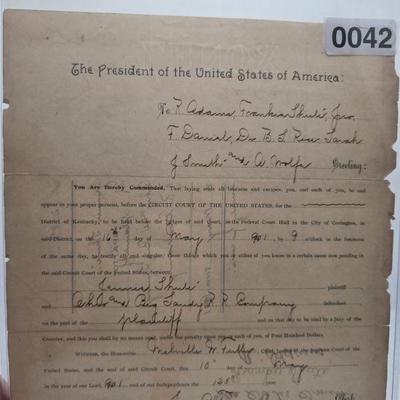 0042
The President of the United States of America:
To R. Adams, Frankie Shute, Jno.
F. Daniel, Dr. B. L. Rice, Sarah
J. Smith and A. Wolfe Greeting:
You Are Hereby Commanded, That laying aside all business and excuses, you, and each of you, be and
appear in your proper persons, before the CIRCUIT COURT OF THE UNITED STATES, for the
District of Kentucky, to be held before the Judges of said court, in the Federal Court Hall in the City of Covington, in
said District, on the 16th day of May 1901, at 9 o'clock in the forenoon
of the same day, to testify all and singular, those things which you or either of you know in a certain cause now pending in
the said Circuit Court of the United States, between
Shute plaintiff
and Ohio and Big Sandy R. R. Company defendant
on the part of the plaintiff and on that day to be tried by a Jury of the
Country, and this you shall by no means omit, under the penalty upon you and each of you, of Four Hundred Dollars.
Witness, the Honorable Melville W. Fuller, Chief Justice of the Supreme Court of the
United States, and the seal of said Circuit Court, this 10" day of May
in the year of our Lord, 1901 and of our Independence the 125th
Clerk